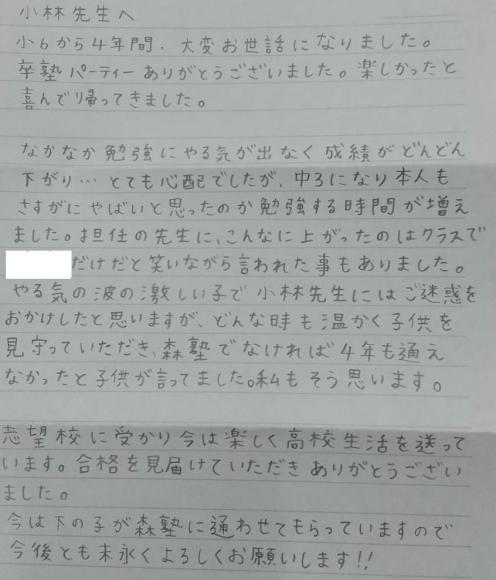 小林先生へ
小6から4年間、大変お世話になりました。
卒塾パーティーありがとうございました。楽しかったと
喜んで帰ってきました。
なかなか勉強にやる気が出なく成績がどんどん
下がり…とても心配でしたが、中3になり本人も
さすがにやばいと思ったのか勉強する時間が増え
ました。担任の先生に、こんなに上がったのはクラスで
だけだと笑いながら言われた事もありました。
やる気の波の激しい子で小林先生にはご迷惑を
おかけしたと思いますが、どんな時も温かく子供を
見守っていただき、森塾でなければ4年も通え
なかったと子供が言ってました。私もそう思います。
志望校に受かり今は楽しく高校生活を送って
います。合格を見届けていただきありがとうござい
ました。
今は下の子が森塾に通わせてもらっていますので
今後とも末永くよろしくお願いします!!